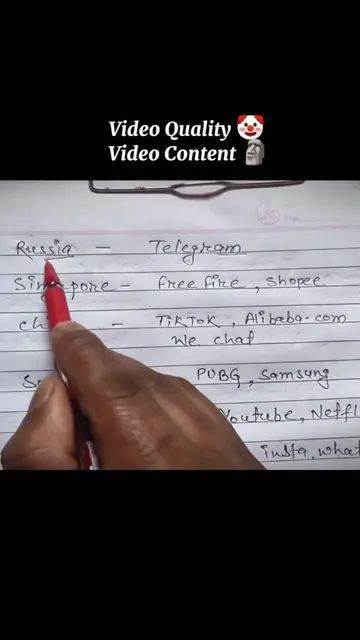 Video Quality 🤡
Video Content 🗿
Russia – Telegram
Singapore – free fire, shopee.
TikTok, Alibaba.com
We chat
PUBG, Samsung
Youtube, Netfl
insta, what